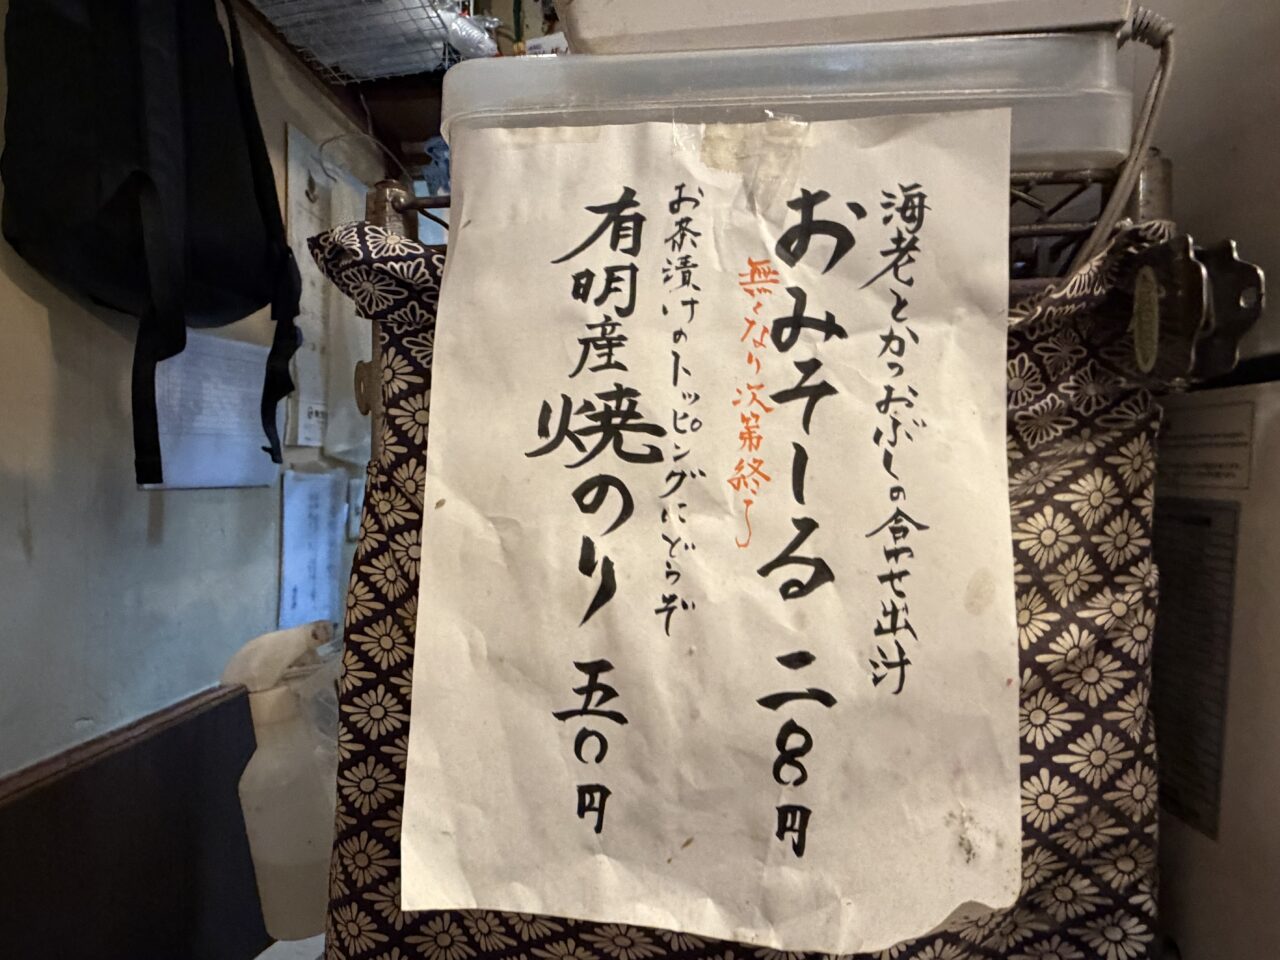 海老とかつおぶしの合わせ出汁
おみそしる 二〇〇円
無くなり次第終了
お茶漬けのトッピングにどうぞ
有明産焼のり 五〇円